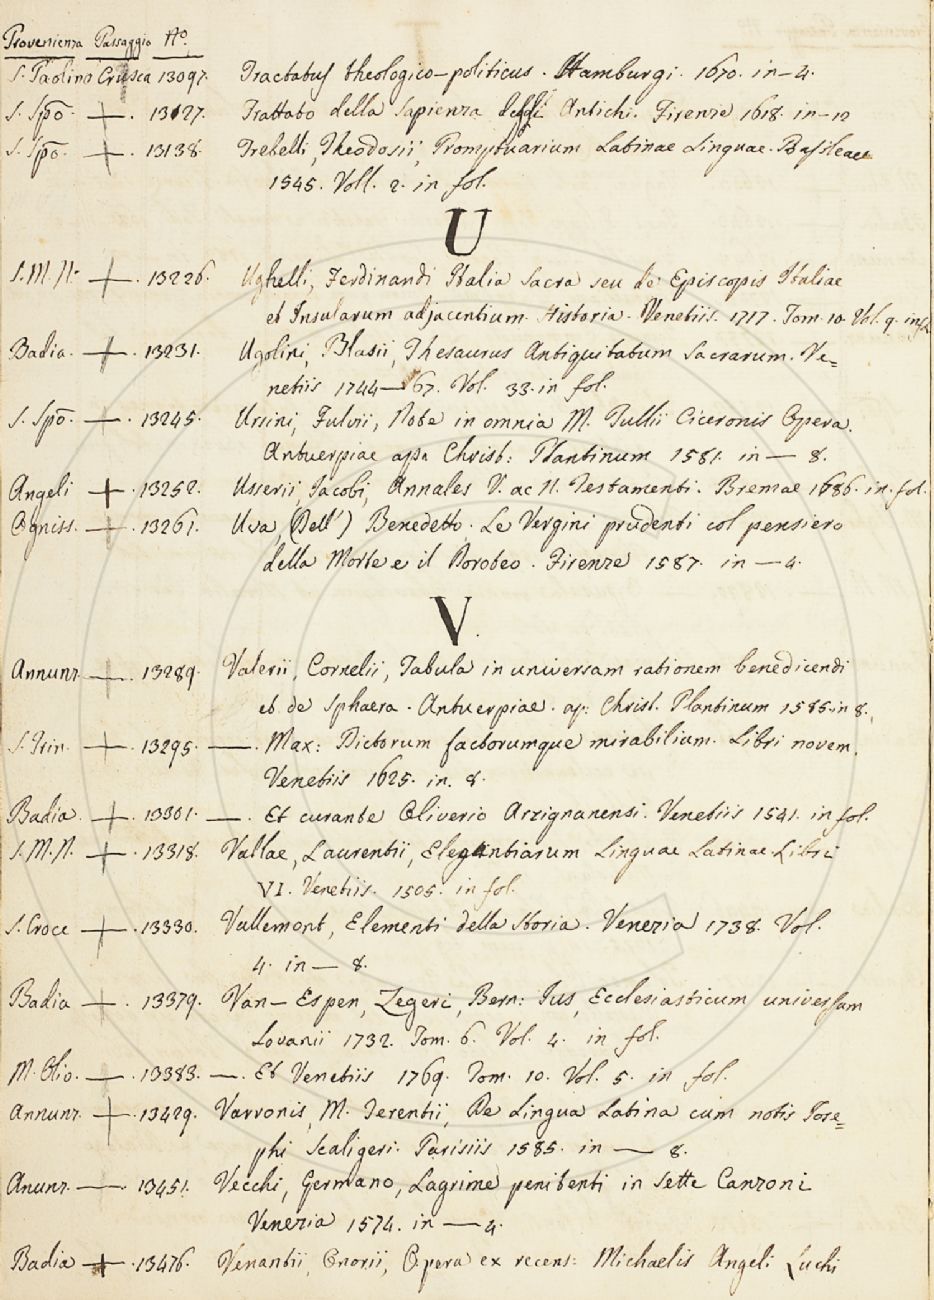 Provenienza Passaggio No.
S. Paolino Crusca 13097. Tractatus theologico-politicus. Hamburgi. 1670. in-4.
S. Spo. + . 13127. Trattato della Sapienza degli Antichi. Firenze 1618. in-12
S. Spo. + . 13138. Trebelli, Theodosii, Promptuarium Latinae Linguae. Basileae
1545. Voll. 2. in fol.
U
S. M. N. + . 13226. Ughelli, Ferdinandi Italia Sacra seu de Episcopis Italiae
et Insularum adjacentium. Historia. Venetiis. 1717. Tom. 10. Vol. 9. in fol.
Badia. + . 13231. Ugolini, Blasii, Thesaurus Antiquitatum Sacrarum. Ve=
netiis 1744—67. Vol. 33. in fol.
S. Spo. — . 13245. Ursini, Fulvii, Notae in omnia M. Tullii Ciceronis Opera.
Antuerpiae apa Christ: Plantinum 1581. in — 8.
Angeli + . 13252. Usserii, Jacobi, Annales V. ac N. Testamenti. Bremae 1686. in. fol.
Ogniss. — . 13261. Uva, (Dell') Benedetto. Le Vergini prudenti col pensiero
della Morte e il Doroteo. Firenze 1587. in — 4.
V.
Annunz. — . 13289. Valerii, Cornelii, Tabula in universam rationem benedicendi
et de Sphaera. Antuerpiae. ap: Christ. Plantinum 1585. in 8.
S. Trin. + . 13295. — . Max: Dictorum factorumque mirabilium. Libri novem.
Venetiis 1625. in. 8.
Badia. + . 13301. — . Et curante Oliverio Arzignanensi. Venetiis 1541. in fol.
S. M. N. + . 13318. Vallae, Laurentii, Elegantiarum Linguae Latinae Libri
VI. Venetiis. 1505. in fol.
S. Croce + . 13330. Vallemont, Elementi della Storia. Venezia 1738. Vol.
4. in — 8.
Badia + . 13379. Van-Espen, Zegeri, Bern: Jus, Ecclesiasticum universam
Lovanii 1732. Tom. 6. Vol. 4. in fol.
M. Olio. — . 13383. — . Et Venetiis 1769. Tom. 10. Vol. 5. in fol.
Annunz. + . 13429. Varronis, M. Terentii, De Lingua Latina cum notis Jose=
phi Scaligeri. Parisiis 1585. in — 8.
Anunz. — . 13451. Vecchi, Germano, Lagrime penitenti in Sette Canzoni
Venezia 1574. in — 4.
Badia + . 13476. Venantii, Onorii, Opera ex recens: Michaelis Angeli Luchi